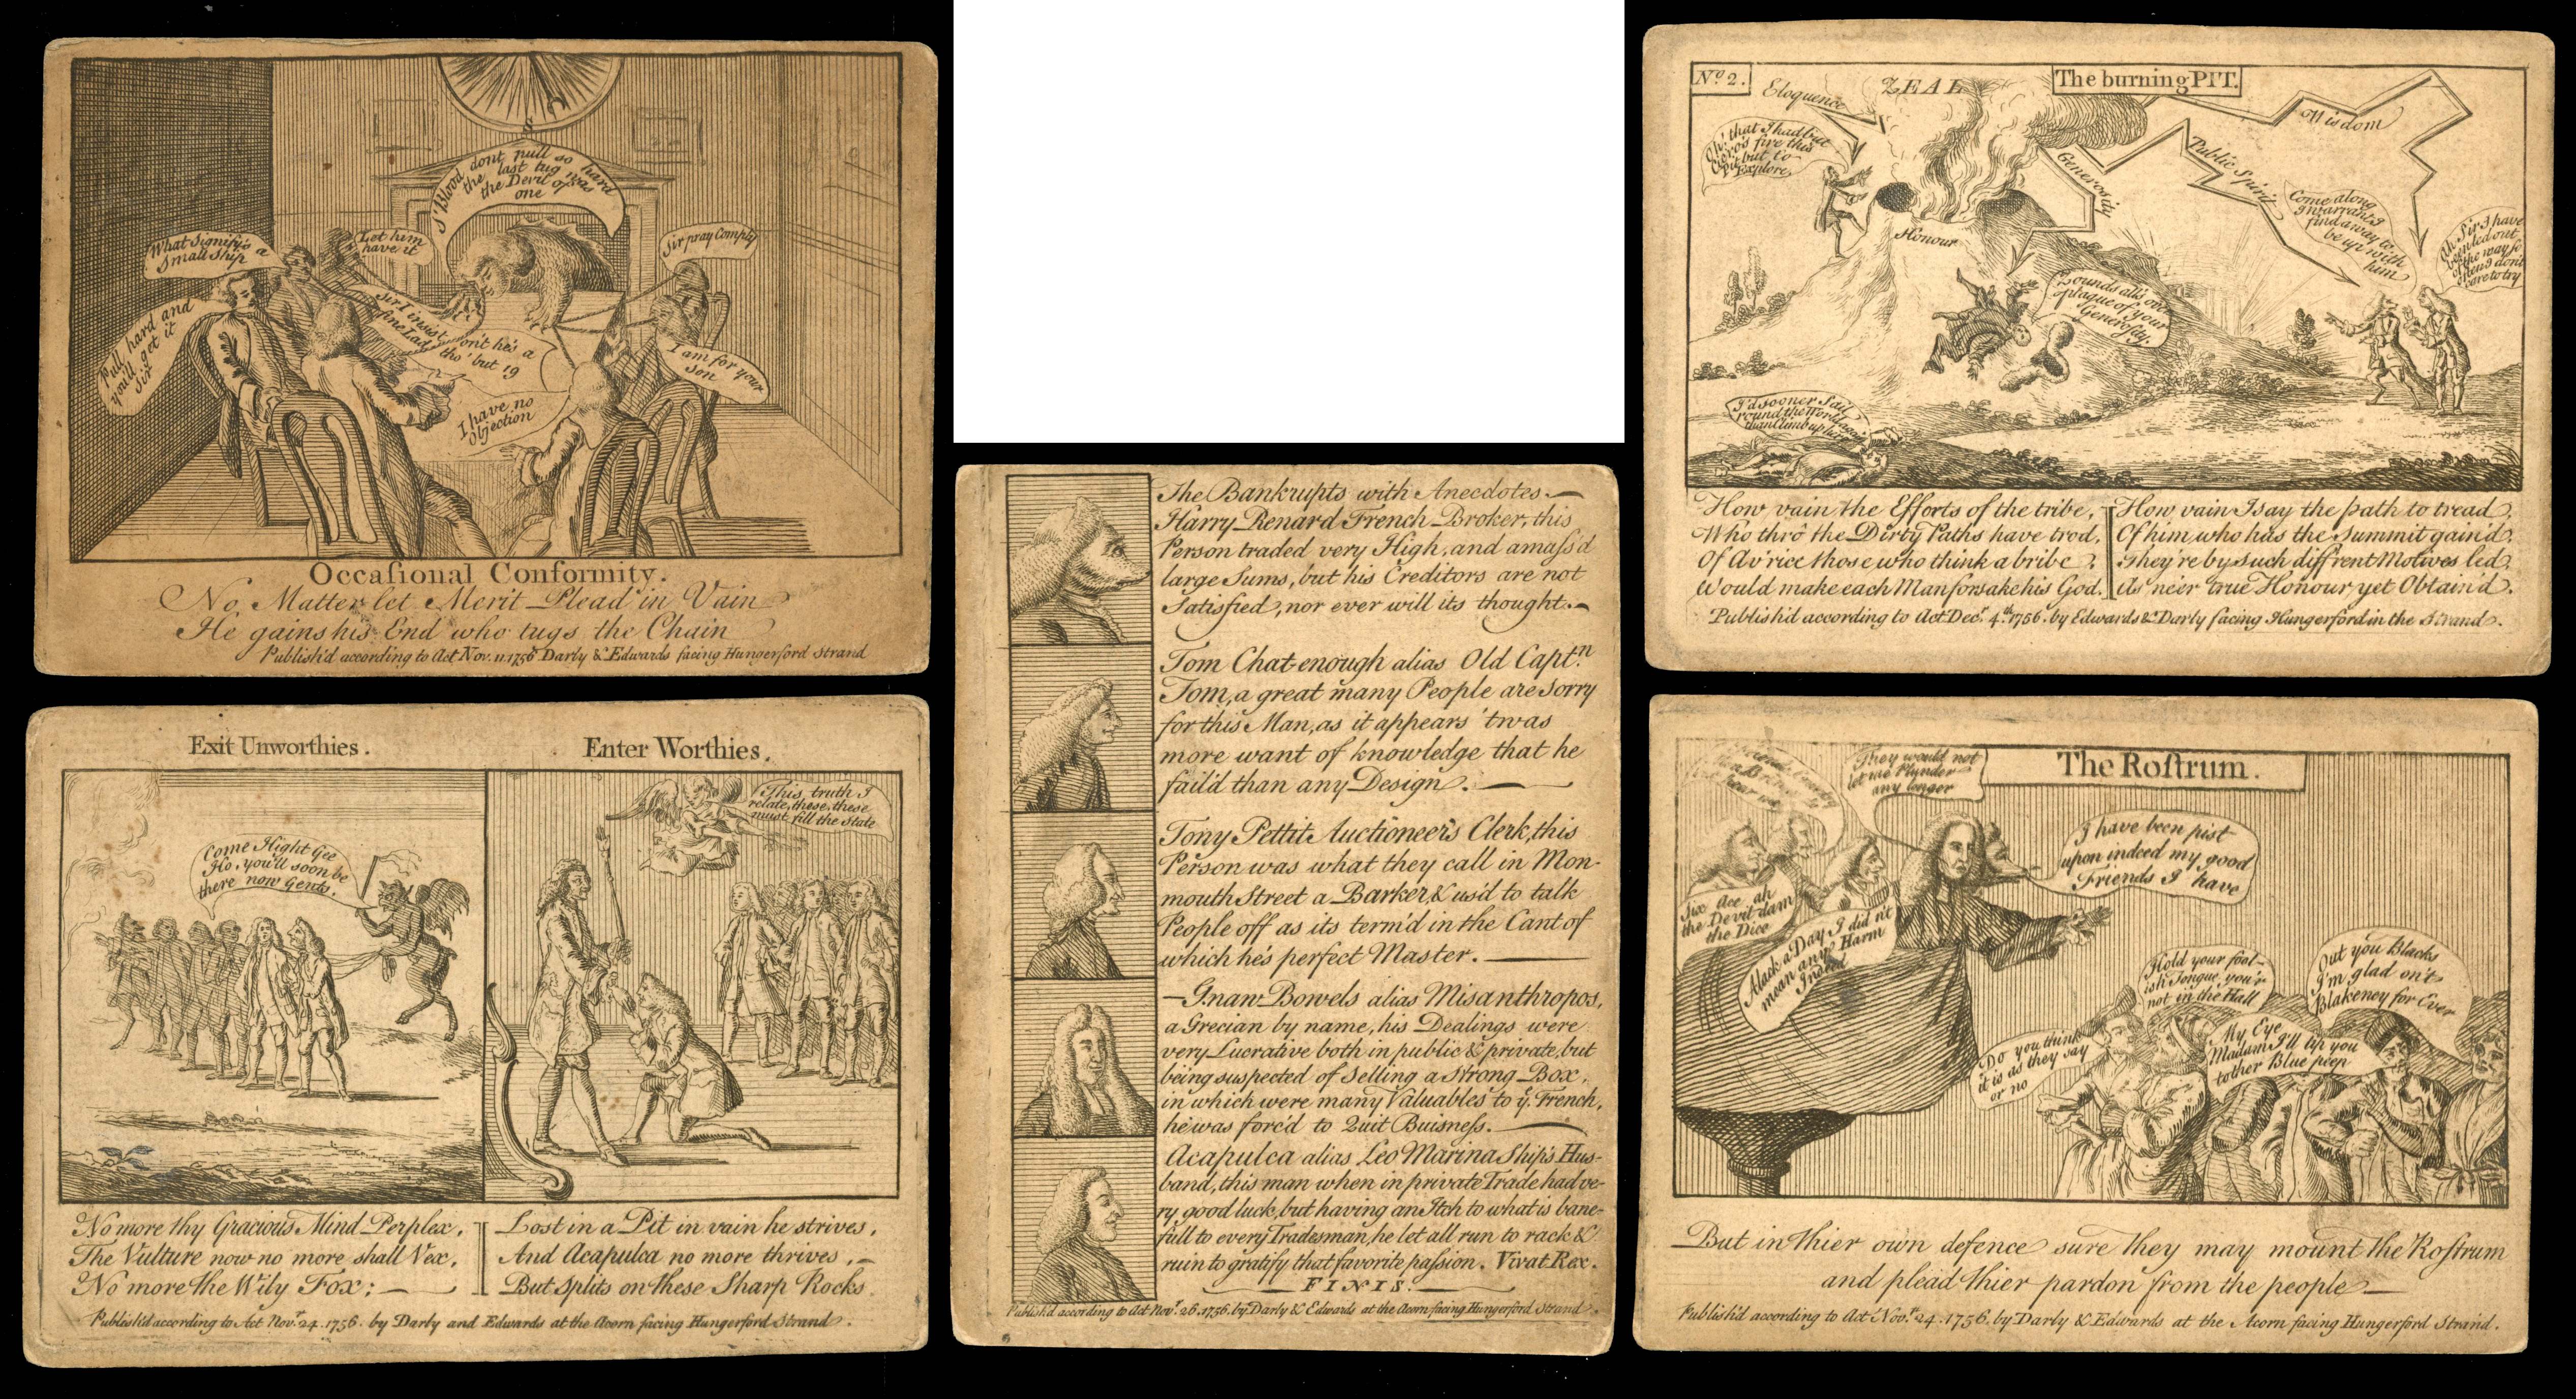 What Signifys a
Small Ship
Let him
have it
S'Blood dont pull so hard
the last tug was
the Devil of
one
Sir pray Comply
Pull hard and
you'll get it
Sir
Sir I insist on't he's a
fine Lad tho' but 19
I have no
Objection
I am for your
Son
Occasional Conformity.
No Matter let Merit Plead in Vain
He gains his End who tugs the Chain
Publish'd according to Act Nov. 11. 1756 Darly & Edwards facing Hungerford Strand
Exit Unworthies.
Enter Worthies.
Come Hight Gee
Ho, you'll soon be
there now Gents.
This truth I
relate, these, these
must fill the State
No more thy Gracious Mind Perplex,
The Vulture now no more shall Vex,
No more the Wily Fox;
Lost in a Pit in vain he strives,
And Acapulca no more thrives,
But Splits on these Sharp Rocks
Publish'd according to Act Novr. 24. 1756. by Darly and Edwards at the Acorn facing Hungerford Strand.
The Bankrupts with Anecdotes.
Harry Renard French Broker, this
Person traded very High, and amass'd
large Sums, but his Creditors are not
Satisfied, nor ever will its thought.
Tom Chat-enough alias Old Captn.
Tom, a great many People are Sorry
for this Man, as it appears 'twas
more want of knowledge that he
fail'd than any Design.
Tony Pettit Auctioneer's Clerk, this
Person was what they call in Mon-
mouth Street a Barker & us'd to talk
People off as its term'd in the Cant of
which he's perfect Master.
Gnaw-Bowels alias Misanthropos,
a Grecian by name, his Dealings were
very Lucrative both in public & private, but
being suspected of Selling a Strong Box,
in which were many Valuables to ye. French,
he was forc'd to Quit Buisness.
Acapulca alias Leo Marina Ship's Hus-
band, this man when in private Trade had ve-
ry good luck, but having an Itch to what is bane-
full to every Tradesman, he let all run to rack &
ruin to gratify that favorite passion. Vivat Rex.
FINIS.
Publish'd according to Act Novr. 26. 1756. by Darly & Edwards at the Acorn facing Hungerford Strand.
No 2.
Eloquence
ZEAL
The burning PIT.
Wisdom
Oh! that I had but
Cicero's fire this
Pit but to
Explore
Generosity
Public Spirit
Honour
Come along
I warrant I
find a way to
be up with
him
Ah Sir I have
been led out
of the way so
often I don't
care to try
Zounds all's over
plague of your
Generosity.
I'd sooner Sail
round the World again
than Climb up here
How vain the Efforts of the tribe,
Who thro' the Dirty Paths have trod,
Of Av'rice those who think a bribe
Would make each Man forsake his God.
How vain I say the path to tread
Of him who has the Summit gain'd,
They're by Such diff'rent Motives led,
As ne'er true Honour yet Obtain'd.
Publish'd according to Act Decr. 4th. 1756. by Edwards & Darly facing Hungerford in the Strand.
The Rostrum.
They would not
let me Plunder
any longer
hear me
I have been pist
upon indeed my good
Friends I have
Six Ace ah
the Devil dam
the Dice
Alack a Day I did n't
mean any Harm
Indeed
Hold your fool-
ish Tongue, you'r
not in the Hall
Out you Blacks
I'm glad on't
Blakeney for Ever
Do you think
it is as they say
or no
My Eye
Madam I'll tip you
tother Blue peep
But in thier own defence sure they may mount the Rostrum
and plead thier pardon from the people
Publish'd according to Act Novr. 24. 1756. by Darly & Edwards at the Acorn facing Hungerford Strand.